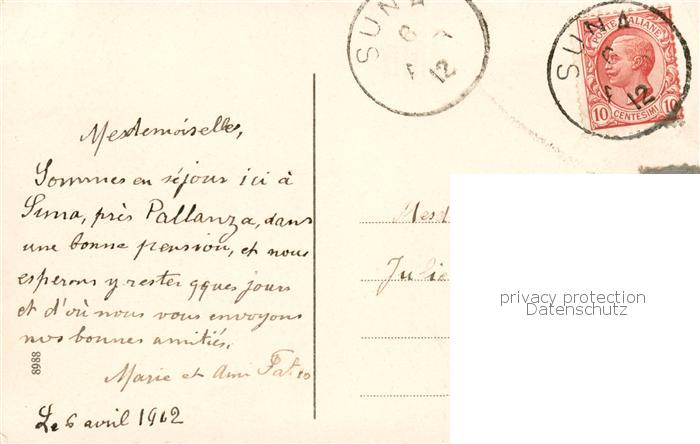 Mesdemoiselles,
Sommes en séjour ici à
Suna, près Pallanza, dans
une bonne pension, et nous
esperons y rester qques jours
et d'où nous vous envoyons
nos bonnes amitiés.
Marie et Ami Fatio
Le 6 avril 1912
8988
SUNA
6
12
SUNA
6
12
POSTE ITALIANE
10 CENTESIMI 10
Mesd
Julie
privacy protection
Datenschutz